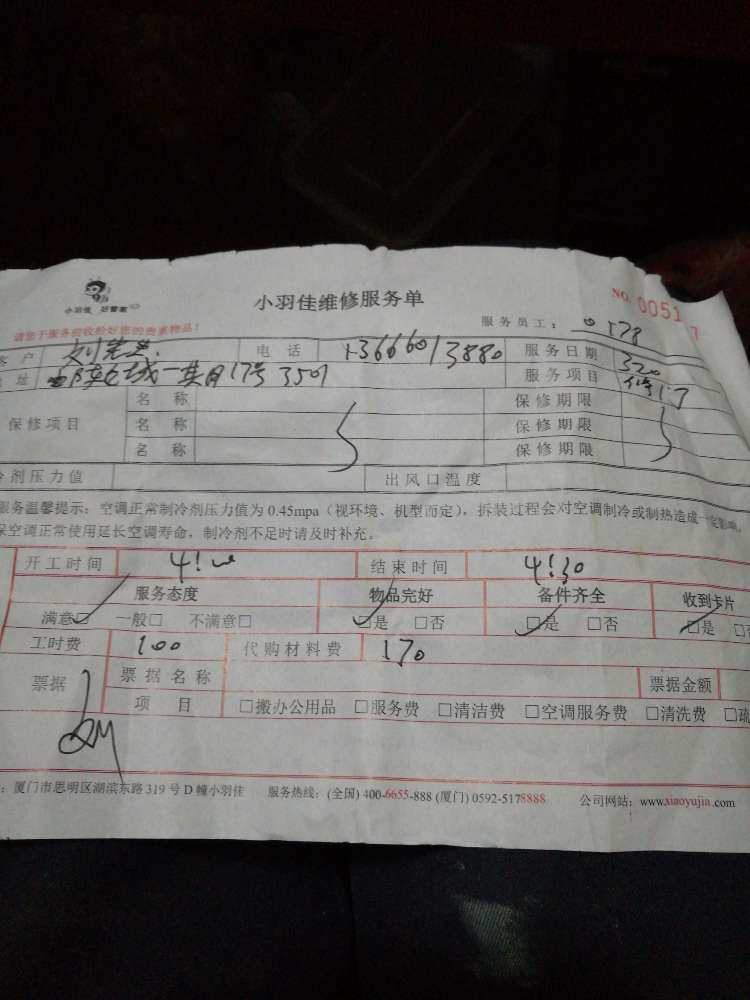 小羽佳 好管家
小羽佳维修服务单
NO. 0051 7
请您于服务前收拾好您的贵重物品!
服务员工: 0178
客户 刘先生 电话 13666013880 服务日期 320
地址 一期17号3501 服务项目 修门
保修项目 名称 保修期限
名称 保修期限
名称 保修期限
冷剂压力值 出风口温度
服务温馨提示:空调正常制冷剂压力值为 0.45mpa(视环境、机型而定),拆装过程会对空调制冷或制热造成一定影响,
保空调正常使用延长空调寿命,制冷剂不足时请及时补充。
开工时间 结束时间 4:30
服务态度 物品完好 备件齐全 收到卡片
满意□ 一般□ 不满意□ □是 □否 □是 □否 □是 □否
工时费 100 代购材料费 170
票据 票据名称 票据金额
项目 □搬办公用品 □服务费 □清洁费 □空调服务费 □清洗费 □疏
:厦门市思明区湖滨东路 319 号 D 幢小羽佳 服务热线:(全国) 400-6655-888 (厦门) 0592-5178888 公司网站:www.xiaoyujia.com